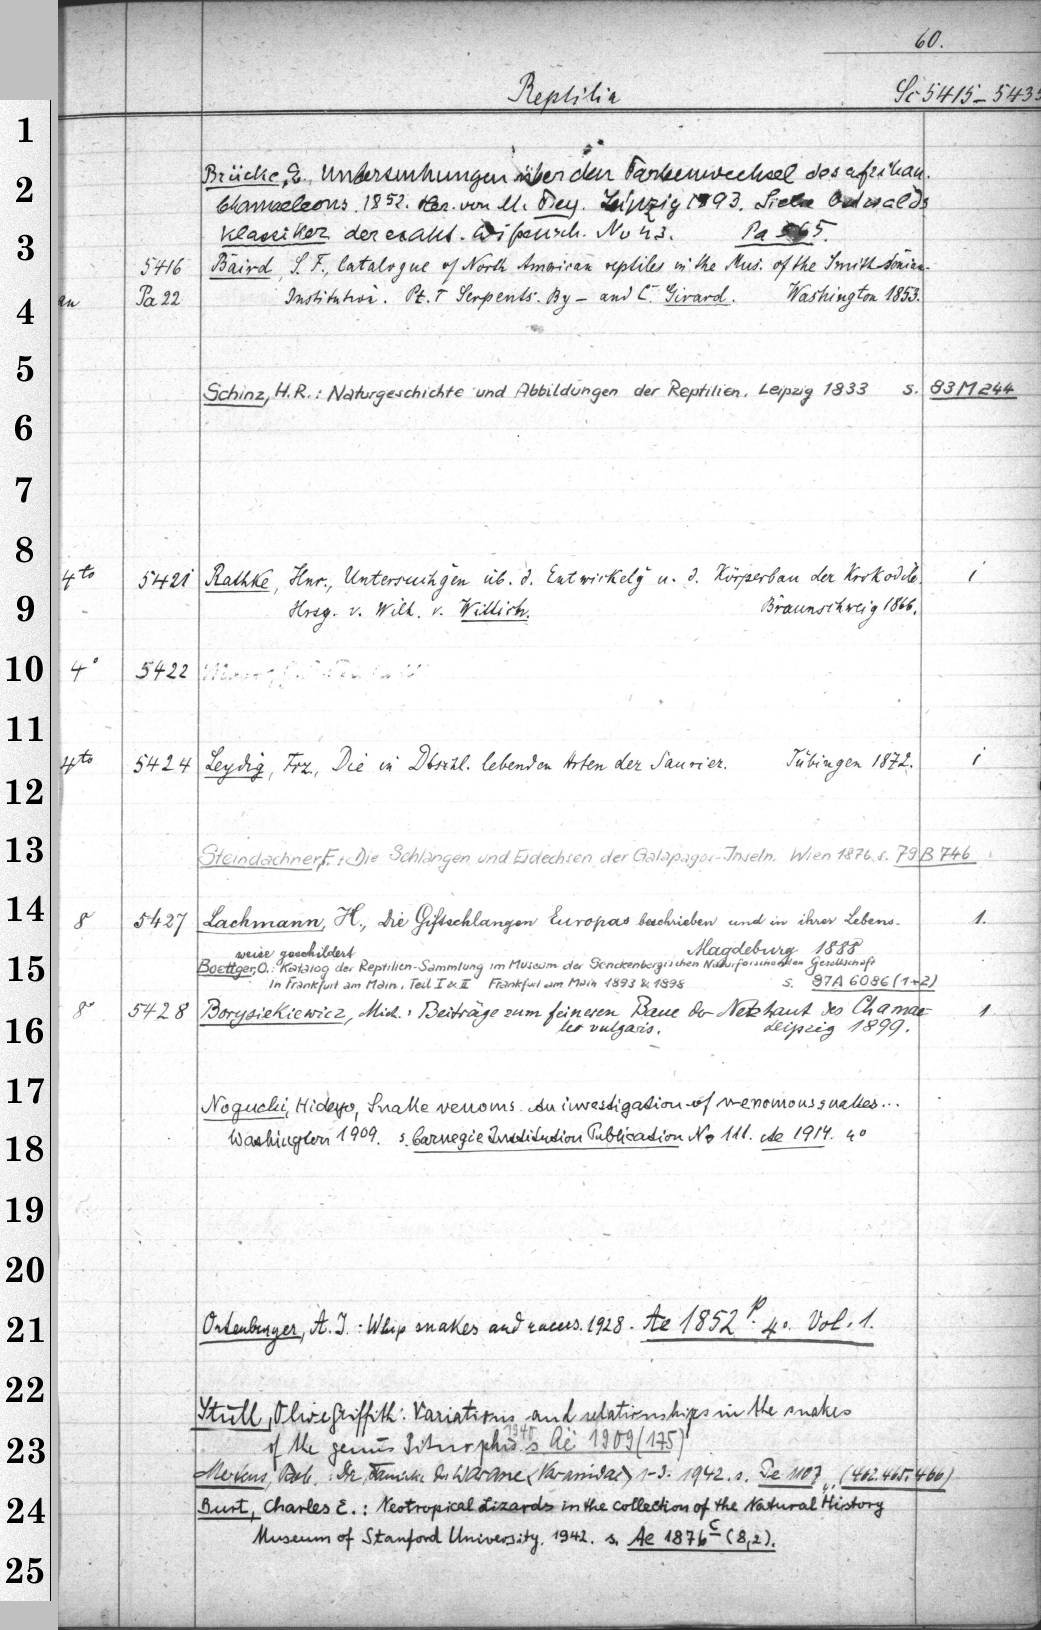 60.
Reptilia Sc 5415-5435
1
Brücke, E. Untersuchungen über den Farbenwechsel des afrikan.
2
Chamaeleons. 1852. Hsr. von M. Frey. Leipzig 1893. Siehe Ostwalds
3
Klassiker der exakt. Wissensch. No 43. Pa 565.
5416 Baird, S. F., Catalogue of North American reptiles in the Mus. of the Smithsonian
4
an Pa 22 Institution. Pt. I Serpents. By – and C. Girard. Washington 1853.
5
Schinz, H.R.: Naturgeschichte und Abbildungen der Reptilien. Leipzig 1833 s. 83 M 244
6
7
8
4to 5421 Rathke, Hnr., Untersuchgen üb. d. Entwickelg u. d. Körperbau der Krokodile. i
9
Hrsg. v. Wilh. v. Wittich. Braunschweig 1866.
10
4° 5422
11
4to 5424 Leydig, Frz., Die in Dtschl. lebenden Arten der Saurier. Tübingen 1872. i
12
13
Steindachner, F.: Die Schlangen und Eidechsen der Galapagos-Inseln. Wien 1876. s. 79 B 746
14
8 5427 Lachmann, H., Die Giftschlangen Europas beschrieben und in ihrer Lebens- 1.
weise geschildert Magdeburg 1888
15
Boettger, O.: Katalog der Reptilien-Sammlung im Museum der Senckenbergischen Naturforschenden Gesellschaft
in Frankfurt am Main. Teil I & II Frankfurt am Main 1893 & 1898 s. 87A 6086 (1+2)
8° 5428 Borysiekiewicz, Mich.: Beiträge zum feineren Baue der Netzhaut des Chamae- 1
16
leo vulgaris. Leipzig 1899.
17
Noguchi, Hideyo, Snake venoms. An investigation of venomous snakes...
18
Washington 1909. s. Carnegie Institution Publication No 111. Ae 1914. 4°
19
20
21
Ortenburger, A. I.: Whip snakes and racers. 1928. Ae 1852 p. 4°. Vol. 1.
22
Stull, Olive Griffith: Variations and relationships in the snakes
23
of the genus Pituophis. 1940 s. Ae 1909 (175)
Mertens, Rob.: Die Familie der Warane (Varanidae) 1-3. 1942. s. Pe 1107 4°, (462.465.466)
24
Burt, Charles E.: Neotropical Lizards in the collection of the Natural History
Museum of Stanford University. 1942. s. Ae 1876 c (8,2).
25